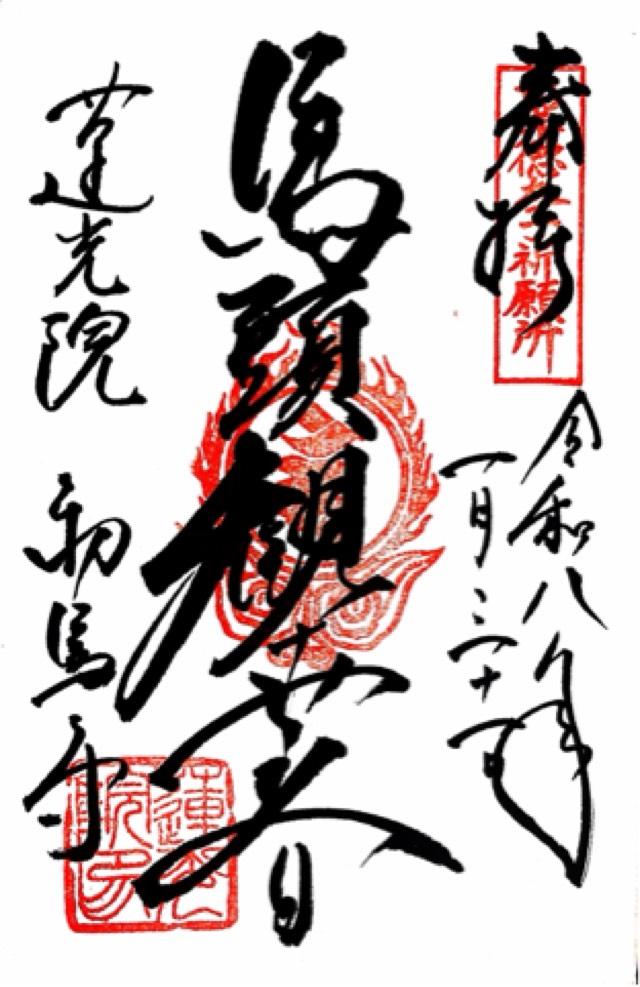 奉拝
聖徳太子祈願所
令和八年
一月
馬頭観世音
蓮光院 初馬寺
蓮光院印